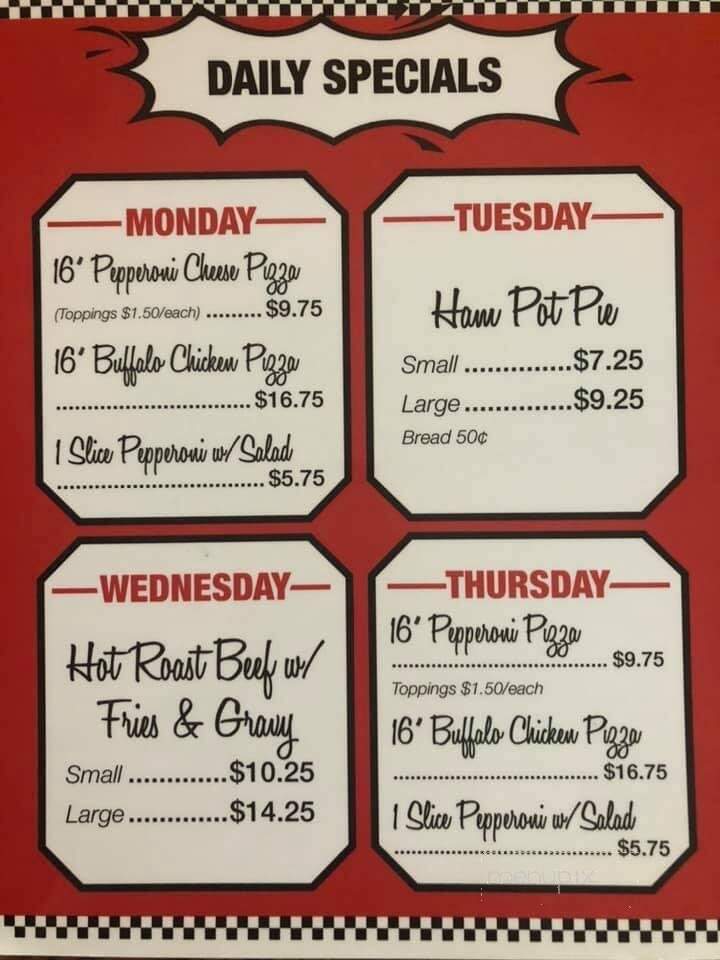 DAILY SPECIALS
MONDAY
16" Pepperoni Cheese Pizza
(Toppings $1.50/each) ......... $9.75
16" Buffalo Chicken Pizza
.............................. $16.75
1 Slice Pepperoni w/Salad
................................ $5.75
TUESDAY
Ham Pot Pie
Small ..............$7.25
Large..............$9.25
Bread 50¢
WEDNESDAY
Hot Roast Beef w/
Fries & Gravy
Small .............$10.25
Large.............$14.25
THURSDAY
16" Pepperoni Pizza
................................. $9.75
Toppings $1.50/each
16" Buffalo Chicken Pizza
............................... $16.75
1 Slice Pepperoni w/Salad
................................. $5.75
menupix